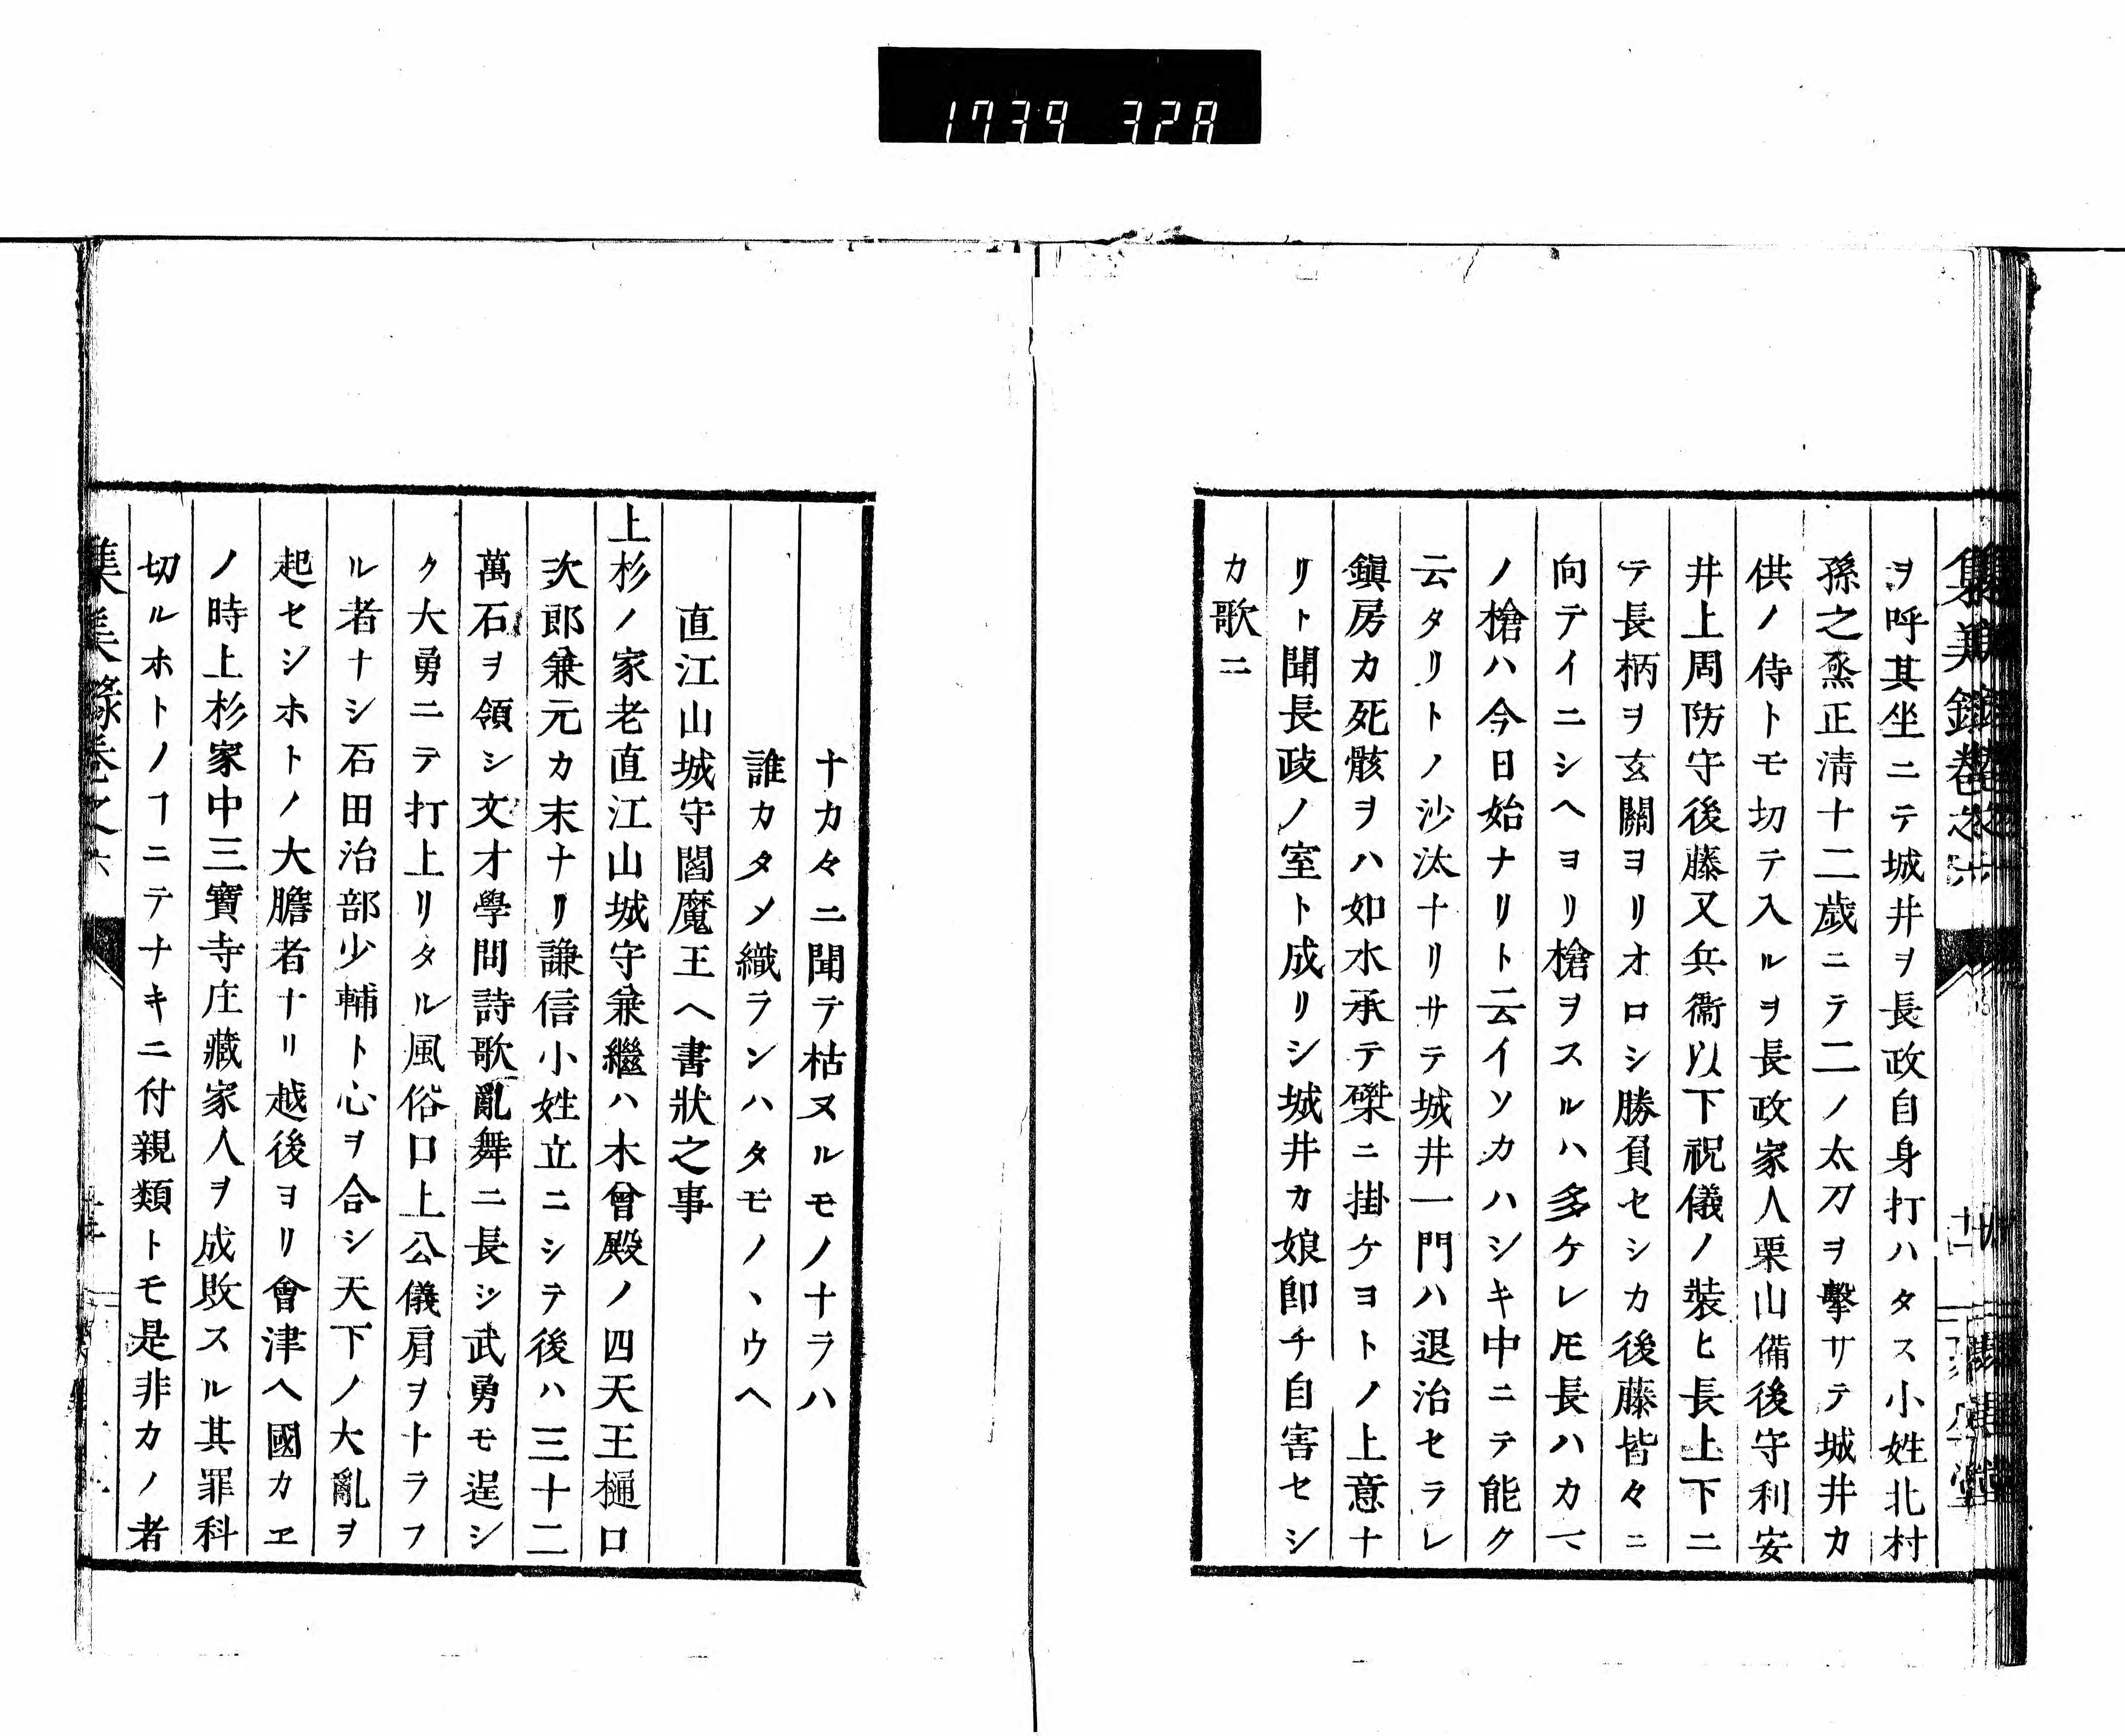 1739 328
ヲ呼其坐ニテ城井ヲ長政自身打ハタス小姓北村
孫之烝正清十二歲ニテ二ノ太刀ヲ擊サテ城井カ
供ノ侍トモ切テ入ルヲ長政家人栗山備後守利安
井上周防守後藤又兵衞以下祝儀ノ裝ヒ長上下ニ
テ長柄ヲ玄關ヨリオロシ勝負セシカ後藤皆々ニ
向テイニシヘヨリ槍ヲスルハ多ケレ𪜈長ハカマ
ノ槍ハ今日始ナリト云イソカハシキ中ニテ能ク
云タリトノ沙汰ナリサテ城井一門ハ退治セラレ
鎭房カ死骸ヲハ如水承テ磔ニ掛ケヨトノ上意ナ
リト聞長政ノ室ト成リシ城井カ娘卽チ自害セシ
カ歌ニ
ナカ々ニ聞テ枯ヌルモノナラハ
誰カタメ織ランハタモノヽウヘ
直江山城守閻魔王ヘ書狀之事
上杉ノ家老直江山城守兼繼ハ木曾殿ノ四天王樋口
次郎兼元カ末ナリ謙信小姓立ニシテ後ハ三十二
萬石ヲ領シ文才學問詩歌亂舞ニ長シ武勇モ逞シ
ク大勇ニテ打上リタル風俗口上公儀肩ヲトラフ
ル者ナシ石田治部少輔ト心ヲ合シ天下ノ大亂ヲ
起セシホトノ大膽者ナリ越後ヨリ會津ヘ國カヱ
ノ時上杉家中三寶寺庄藏家人ヲ成敗スル其罪科
切ルホトノヿニテナキニ付親類トモ是非カノ者